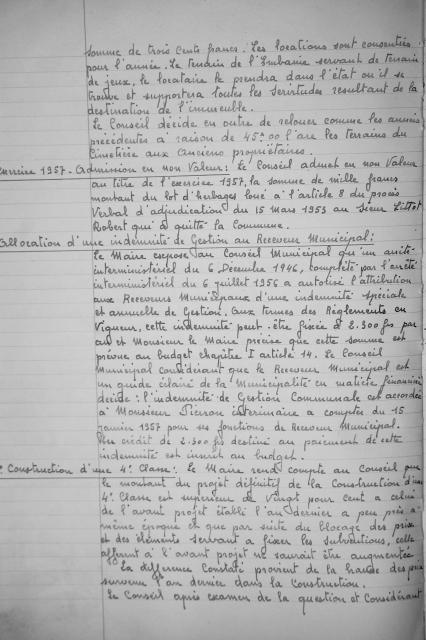 somme de trois cents francs. Les locations sont consenties
pour l'année. Le terrain de l'Embanie servant de terrain
de jeux, le locataire le prendra dans l'état où il se
trouve et supportera toutes les servitudes resultant de la
destination de l'immeuble.
Le Conseil décide en outre de relouer comme les années
précédentes à raison de 45.00 l'are les terrains du
Cimetière aux anciens propriétaires.
1957. Admission en non Valeur: Le Conseil admet en non Valeur
au titre de l'exercice 1957, la somme de mille francs
montant du lot d'herbages loué à l'article 8 du procès
Verbal d'adjudication du 15 Mars 1953 au Sieur
Robert qui a quitté la Commune.
allocation d'une indemnité de Gestion au Receveur Municipal:
Le Maire expose au Conseil Municipal qu'un arrêté
interministériel du 6 Décembre 1946, complété par l'arrêté
interministériel du 6 juillet 1956 a autorisé l'attribution
aux Receveurs Municipaux d'une indemnité spéciale
et annuelle de Gestion. Aux termes des Règlements en
Vigueur, cette indemnité peut être fixée à 2.300 frs par
an et Monsieur le Maire précise que cette somme est
prévue au budget chapitre I article 14. Le Conseil
Municipal considérant que le Receveur Municipal est
un guide éclairé de la Municipalité en matière financière
décide: l'indemnité de Gestion Communale est accordée
à Monsieur Pierron intérimaire à compter du 15
janvier 1957 pour ses fonctions de Receveur Municipal.
Un crédit de 2.300 frs destiné au paiement de cette
indemnité est inscrit au budget.
Construction d'une 4e Classe: Le Maire rend compte au Conseil que
le montant du projet définitif de la Construction d'une
4e Classe est supérieur de Vingt pour cent à celui
de l'avant projet établi l'an dernier a peu près à
même époque et que par suite du blocage des prix
et des éléments servant a fixer les subventions, celle
afférent à l'avant projet ne saurait être augmentée
La différence Constaté provient de la hausse des prix
survenue l'an dernier dans la Construction.
Le Conseil après examen de la question et Considérant